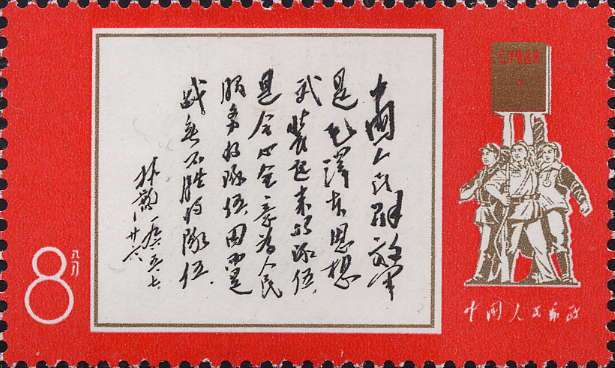 中國人民解放军
是毛澤东思想
武装起来的隊伍，
是全心全意为人民
服务的隊伍，因而是
战无不胜的隊伍。
林彪 一九六五、七、
廿六
8分
中國人民邮政